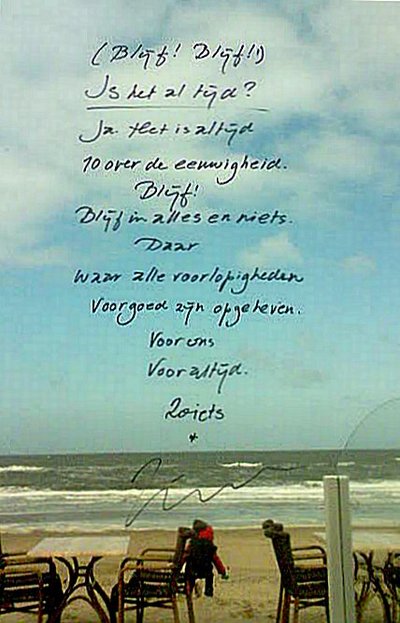 (Blijf! Blijf!!)
Is het al tijd?
Ja. Het is altijd
10 over de eeuwigheid.
Blijf!
Blijf in alles en niets.
Daar
waar alle voorlopigheden
Voorgoed zijn opgeheven.
Voor ons
Voor altijd.
Zoiets
*